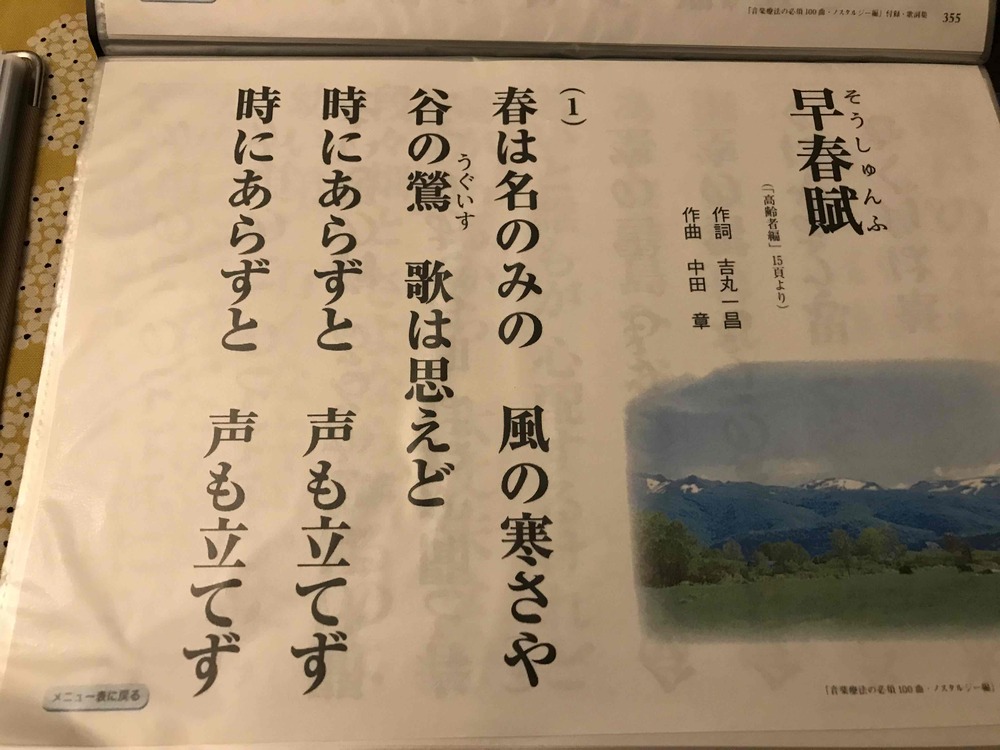 「音楽療法の必須100曲・ノスタルジー編」付録・歌詞集 355
早春賦
そうしゅんふ
(「高齢者編」15頁より)
作詞 吉丸一昌
作曲 中田 章
(1)
春は名のみの 風の寒さや
谷の鶯 歌は思えど
うぐいす
時にあらずと 声も立てず
時にあらずと 声も立てず
メニュー表に戻る
「音楽療法の必須100曲・ノスタルジー編」